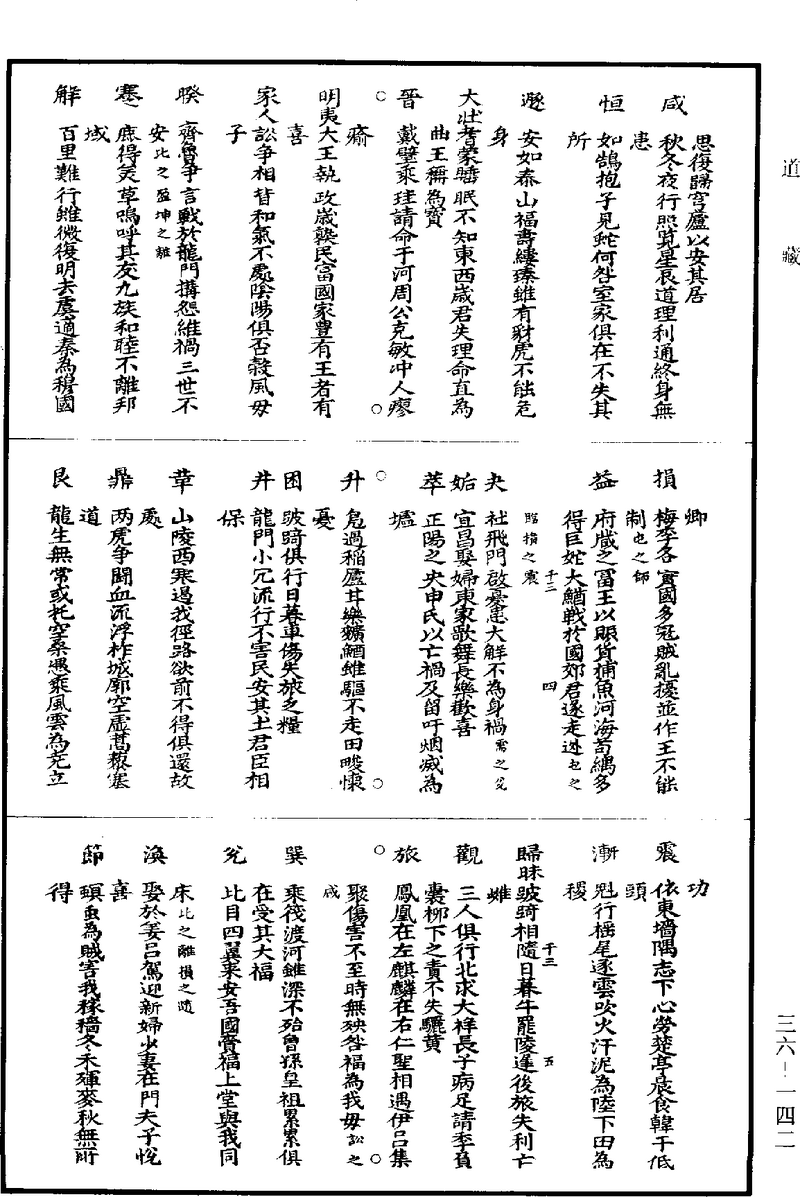 道藏
思復歸穹廬以安其居
咸　秋冬夜行照覧星辰道理利通終身無
患
恒　如鵠抱子見蛇何咎室家俱在不失其
所
遯　安如泰山福壽縷臻雖有豺虎不能危
身
大壯耆蒙睡眠不知東西歲君失理命直為
曲王稱為寳
晉　戴璧乘珪請命于河周公克敏冲人瘳
瘉
明夷大王執政歲熟民富國家豐有王者有
喜
家人訟争相背和氣不處陰陽俱否穀風毋
子
睽　齊魯争言戰於龍門搆怨維禍三世不
安比之盈坤之離
蹇　鹿得美草鳴呼其友九族和睦不離邦
域
解　百里難行雖微復明去虞適秦為穆國
卿
損　梅李各實國多冦賊亂擾並作王不能
制屯之師
益　府藏之冨王以賑貨捕魚河海苟繘多
得巨蛇大鰌戰於國郊君遂走逃屯之
臨損之震
十三　四
夬　社飛門啟憂患大解不為身禍需之兊
姤　宜昌娶婦東家歌舞長樂歡喜
萃　正陽之央申氏以亡禍及留吁烟滅為
墟
升　鳬過稲廬甘樂䵃鰌雖驅不走田畯懷
憂
困　跛踦俱行日暮車傷失旅乏糧
井　龍門小冗流行不害民安其土君臣相
保
革　山陵西寒過我徑路欲前不得俱還故
處
鼎　两虎争鬭血流浮杵城廓空虚蒿藜塞
道
艮　龍生無常或托空桑憑乘風雲為尭立
功
震　依東墻隅志下心勞楚亭晨食韓千低
頭
漸　魁行摇尾逐雲吹火汗泥為陸下田為
稷
歸妹跛踦相隨日暮牛罷陵遲後旅失利亡
雌
千三　五
觀　三人俱行北求大牂長子病足請季負
囊柳下之責不失驪黄
旅　鳳凰在左麒麟在右仁聖相遇伊吕集
聚傷害不至時無殃咎福為我毋訟之
咸
巽　乘筏渡河雖深不殆曾孫皇祖累累俱
在受其大福
兊　比目四翼来安吾國賫福上堂與我同
床比之離損之随
渙　娶於姜吕駕迎新婦少妻在門夫子悦
喜
節　螟虫為賊害我稼穡冬禾殫麥秋無所
得
三六－一四二